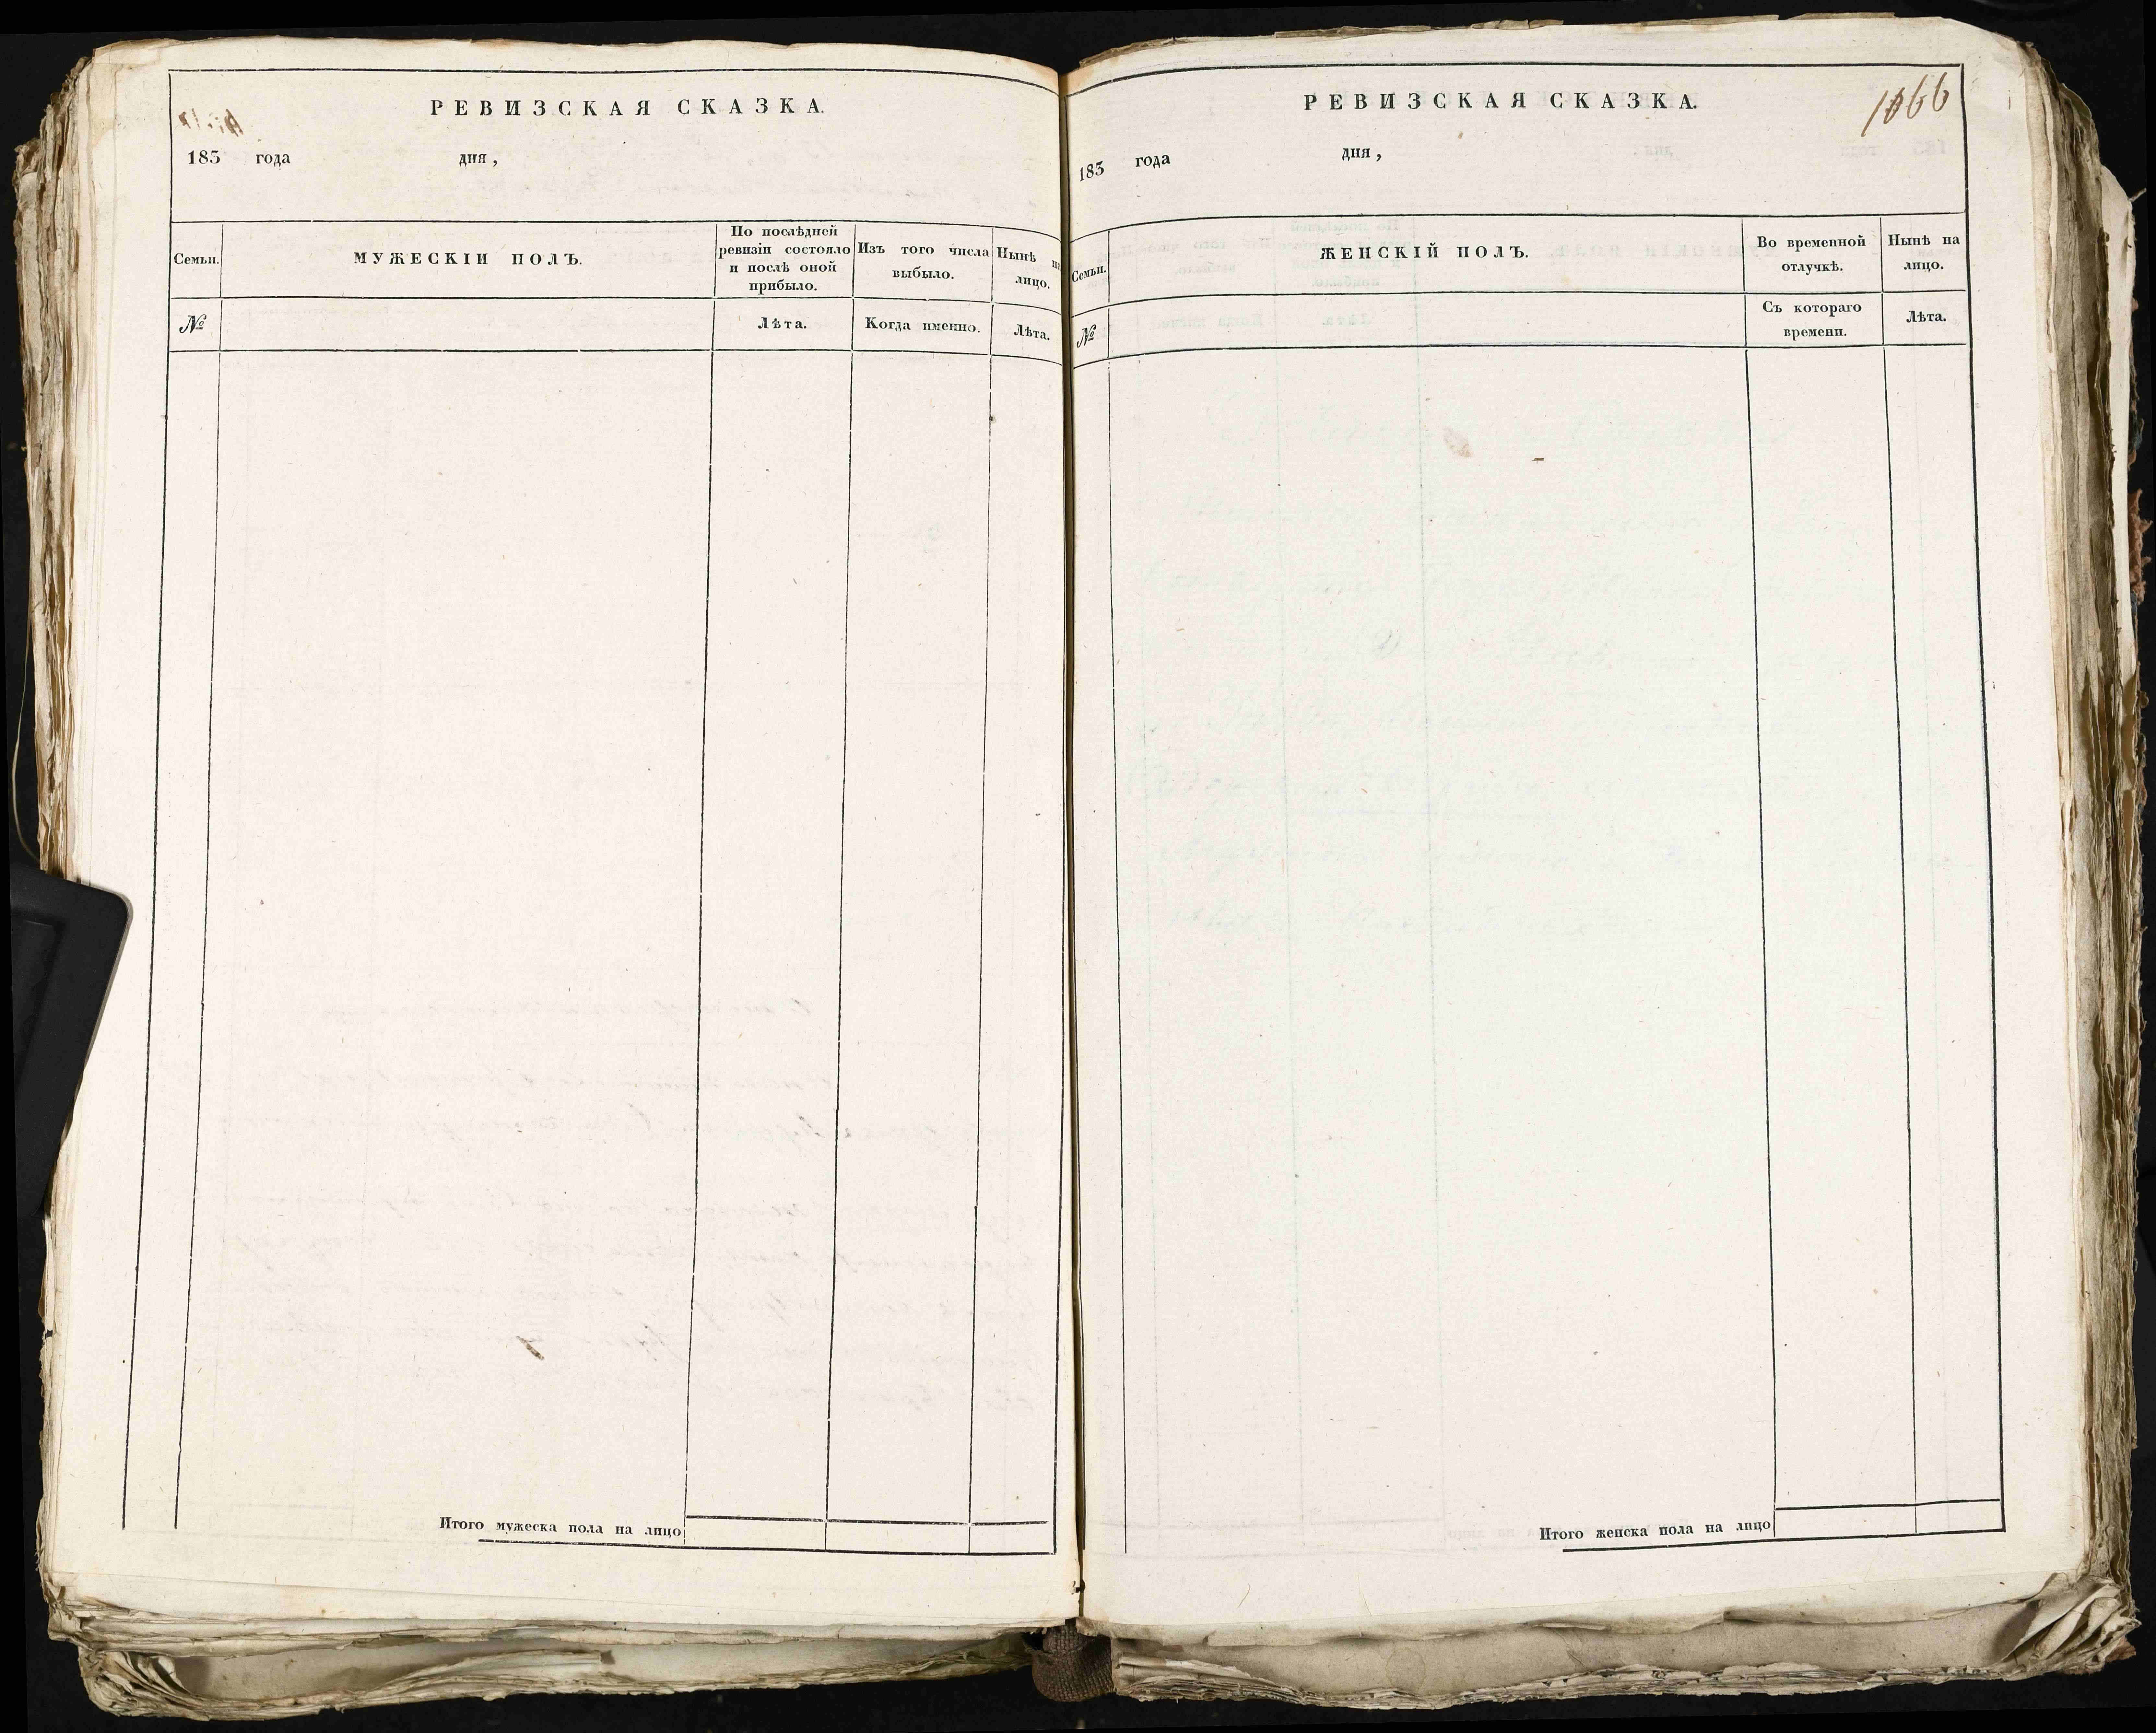 РЕВИЗСКАЯ СКАЗКА.
183 года дня,
Семьи.
МУЖЕСКІЙ ПОЛЪ.
По послѣдней
ревизіи состояло
и послѣ оной
прибыло.
Изъ того числа
выбыло.
Нынѣ на
лицо.
№
Лѣта.
Когда именно.
Лѣта.
Итого мужеска пола на лицо
РЕВИЗСКАЯ СКАЗКА.
1066
183 года дня,
Семьи.
ЖЕНСКІЙ ПОЛЪ.
Во временной
отлучкѣ.
Нынѣ на
лицо.
№
Съ котораго
времени.
Лѣта.
Итого женска пола на лицо